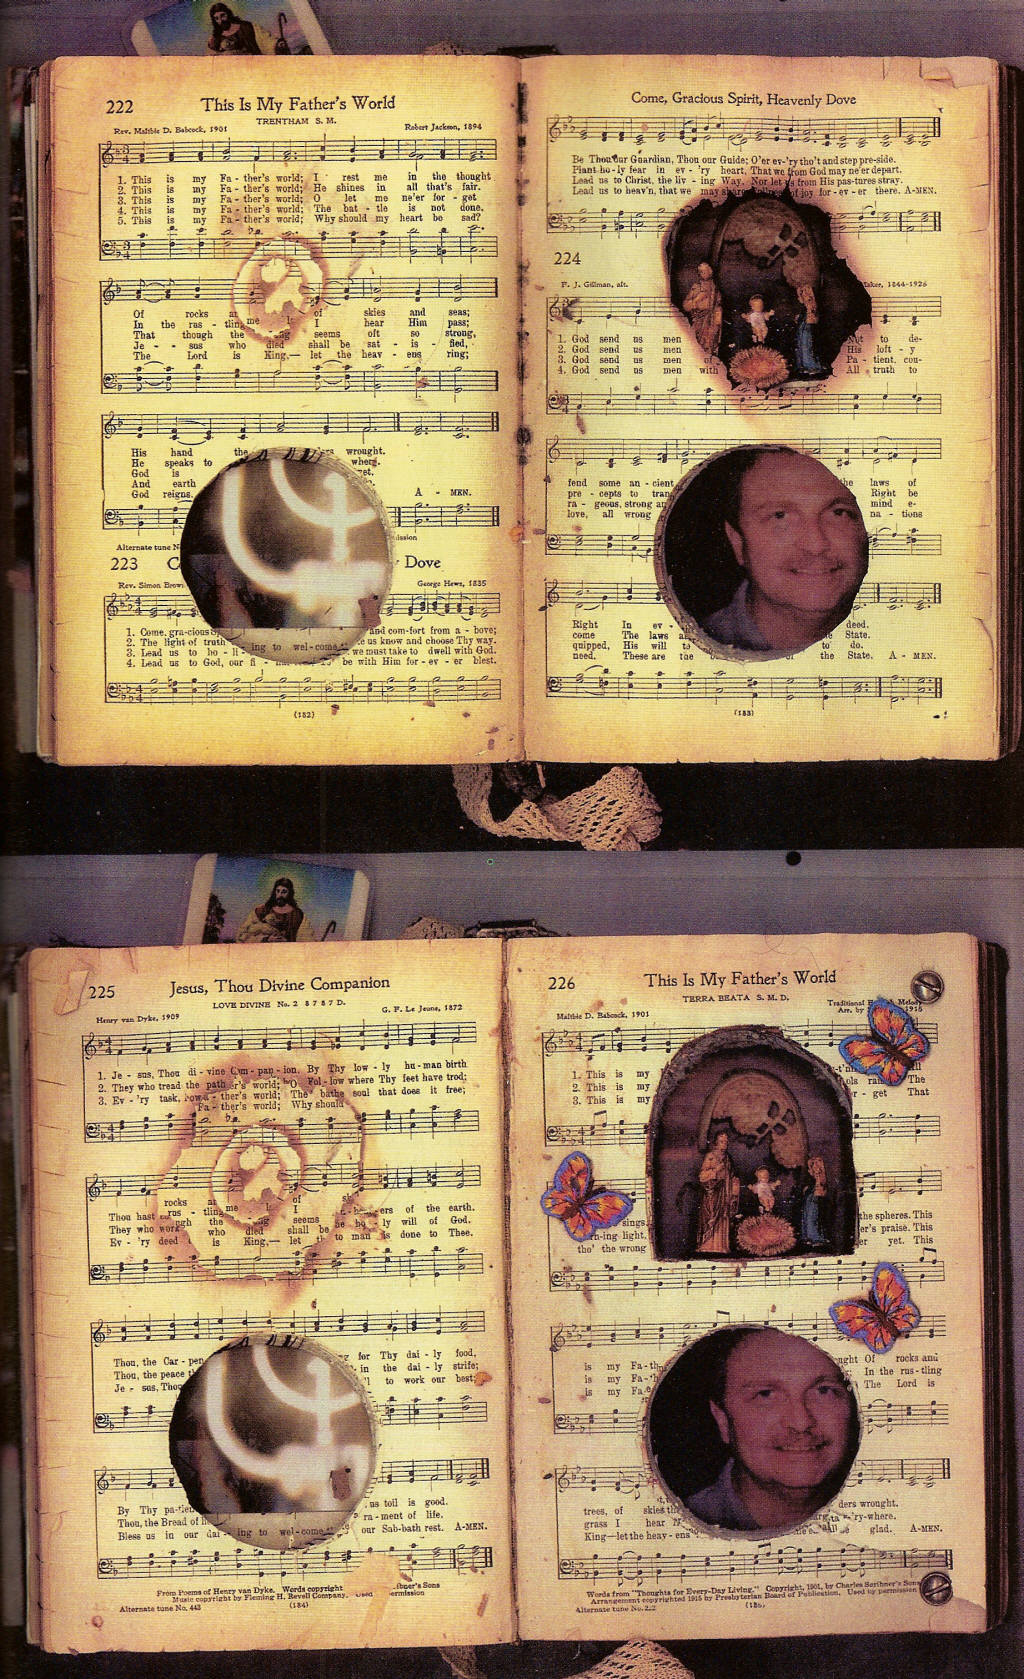 222 This Is My Father's World
TRENTHAM S. M.
Rev. Maltbie D. Babcock, 1901 Robert Jackson, 1894
1. This is my Fa - ther's world; I rest me in the thought
2. This is my Fa - ther's world; He shines in all that's fair.
3. This is my Fa - ther's world; O let me ne'er for - get
4. This is my Fa - ther's world; The bat - tle is not done.
5. This is my Fa - ther's world; Why should my heart be sad?
Of rocks me of skies and seas;
In the rus - tling I hear Him pass;
That though the seems oft so strong,
Je - sus who died shall be sat - is - fied,
The Lord is King,— let the heav - ens ring;
His hand the wrought.
He speaks to where.
God is yet.
And earth
God reigns. A - MEN.
Alternate tune
223 Dove
Rev. Simon George Hews, 1835
1. Come, gra-cious and com-fort from a - bove;
2. The light of truth us know and choose Thy way.
3. Lead us to ho - li - ing to wel-come we must take to dwell with God.
4. Lead us to God, our be with Him for - ev - er blest.
(182)
Come, Gracious Spirit, Heavenly Dove
Be Thou our Guardian, Thou our Guide; O'er ev-'ry tho't and step pre-side.
Plant ho-ly fear in ev - 'ry heart, That we from God may ne'er depart.
Lead us to Christ, the liv - ing Way. Nor let us from His pas-tures stray.
Lead us to heav'n, that we may share of joy for - ev - er there. A-MEN.
224
F. J. Gillman, alt. 1844-1926
1. God send us men Not to de-
2. God send us men His loft - y
3. God send us men of Pa - tient, cou-
4. God send us men with All truth to
fend some an - cient the laws of
pre - cepts to Right be
ra - geous, strong mind e-
love, all wrong na - tions
Right In ev - deed.
come The laws State.
quipped, His will to do.
need. These are the State. A - MEN.
(183)
225 Jesus, Thou Divine Companion
LOVE DIVINE No. 2 8 7 8 7 D.
Henry van Dyke, 1909 G. F. Le Jeune, 1872
1. Je - sus, Thou di - vine Com - pan - ion, By Thy low - ly hu - man birth
2. They who tread the path er's world; O Fol - low where Thy feet have trod;
3. Ev - 'ry task, ther's world; The soul that does it free;
Fa - ther's world; Why should
rocks me of
Thou hast rus - tling I ers of the earth.
They who work the seems ly will of God.
who died shall be
Ev - 'ry deed is King,— let to man is done to Thee.
Thou, the Car - pen for Thy dai - ly food,
Thou, the peace in the dai - ly strife;
Je - sus, Thou to work our best;
By Thy us toil is good.
Thou, the Bread of ra - ment of life.
Bless us in our dai - ing to wel-come our Sab-bath rest. A-MEN.
From Poems of Henry van Dyke. Words copyright Scribner's Sons
Music copyright by Fleming H. Revell Company. Used permission
Alternate tune No. 443 (184)
226 This Is My Father's World
TERRA BEATA S. M. D.
Maltbie D. Babcock, 1901 Traditional Melody
Arr. by 1915
1. This is my
2. This is my The
3. This is my get That
sings, the spheres. This
ing light, er's praise. This
tho' the wrong er yet. This
is my Fa - Of rocks and
is my Fa - In the rus - tling
is my Fa - The Lord is
trees, of skies wrought.
grass I hear 'ry-where.
King—let the heav - ens glad. A-MEN.
Words from "Thoughts for Every-Day Living." Copyright, 1901, by Charles Scribner's Sons
Arrangement copyrighted 1915 by Presbyterian Board of Publication. Used by permission
Alternate tune No. 222